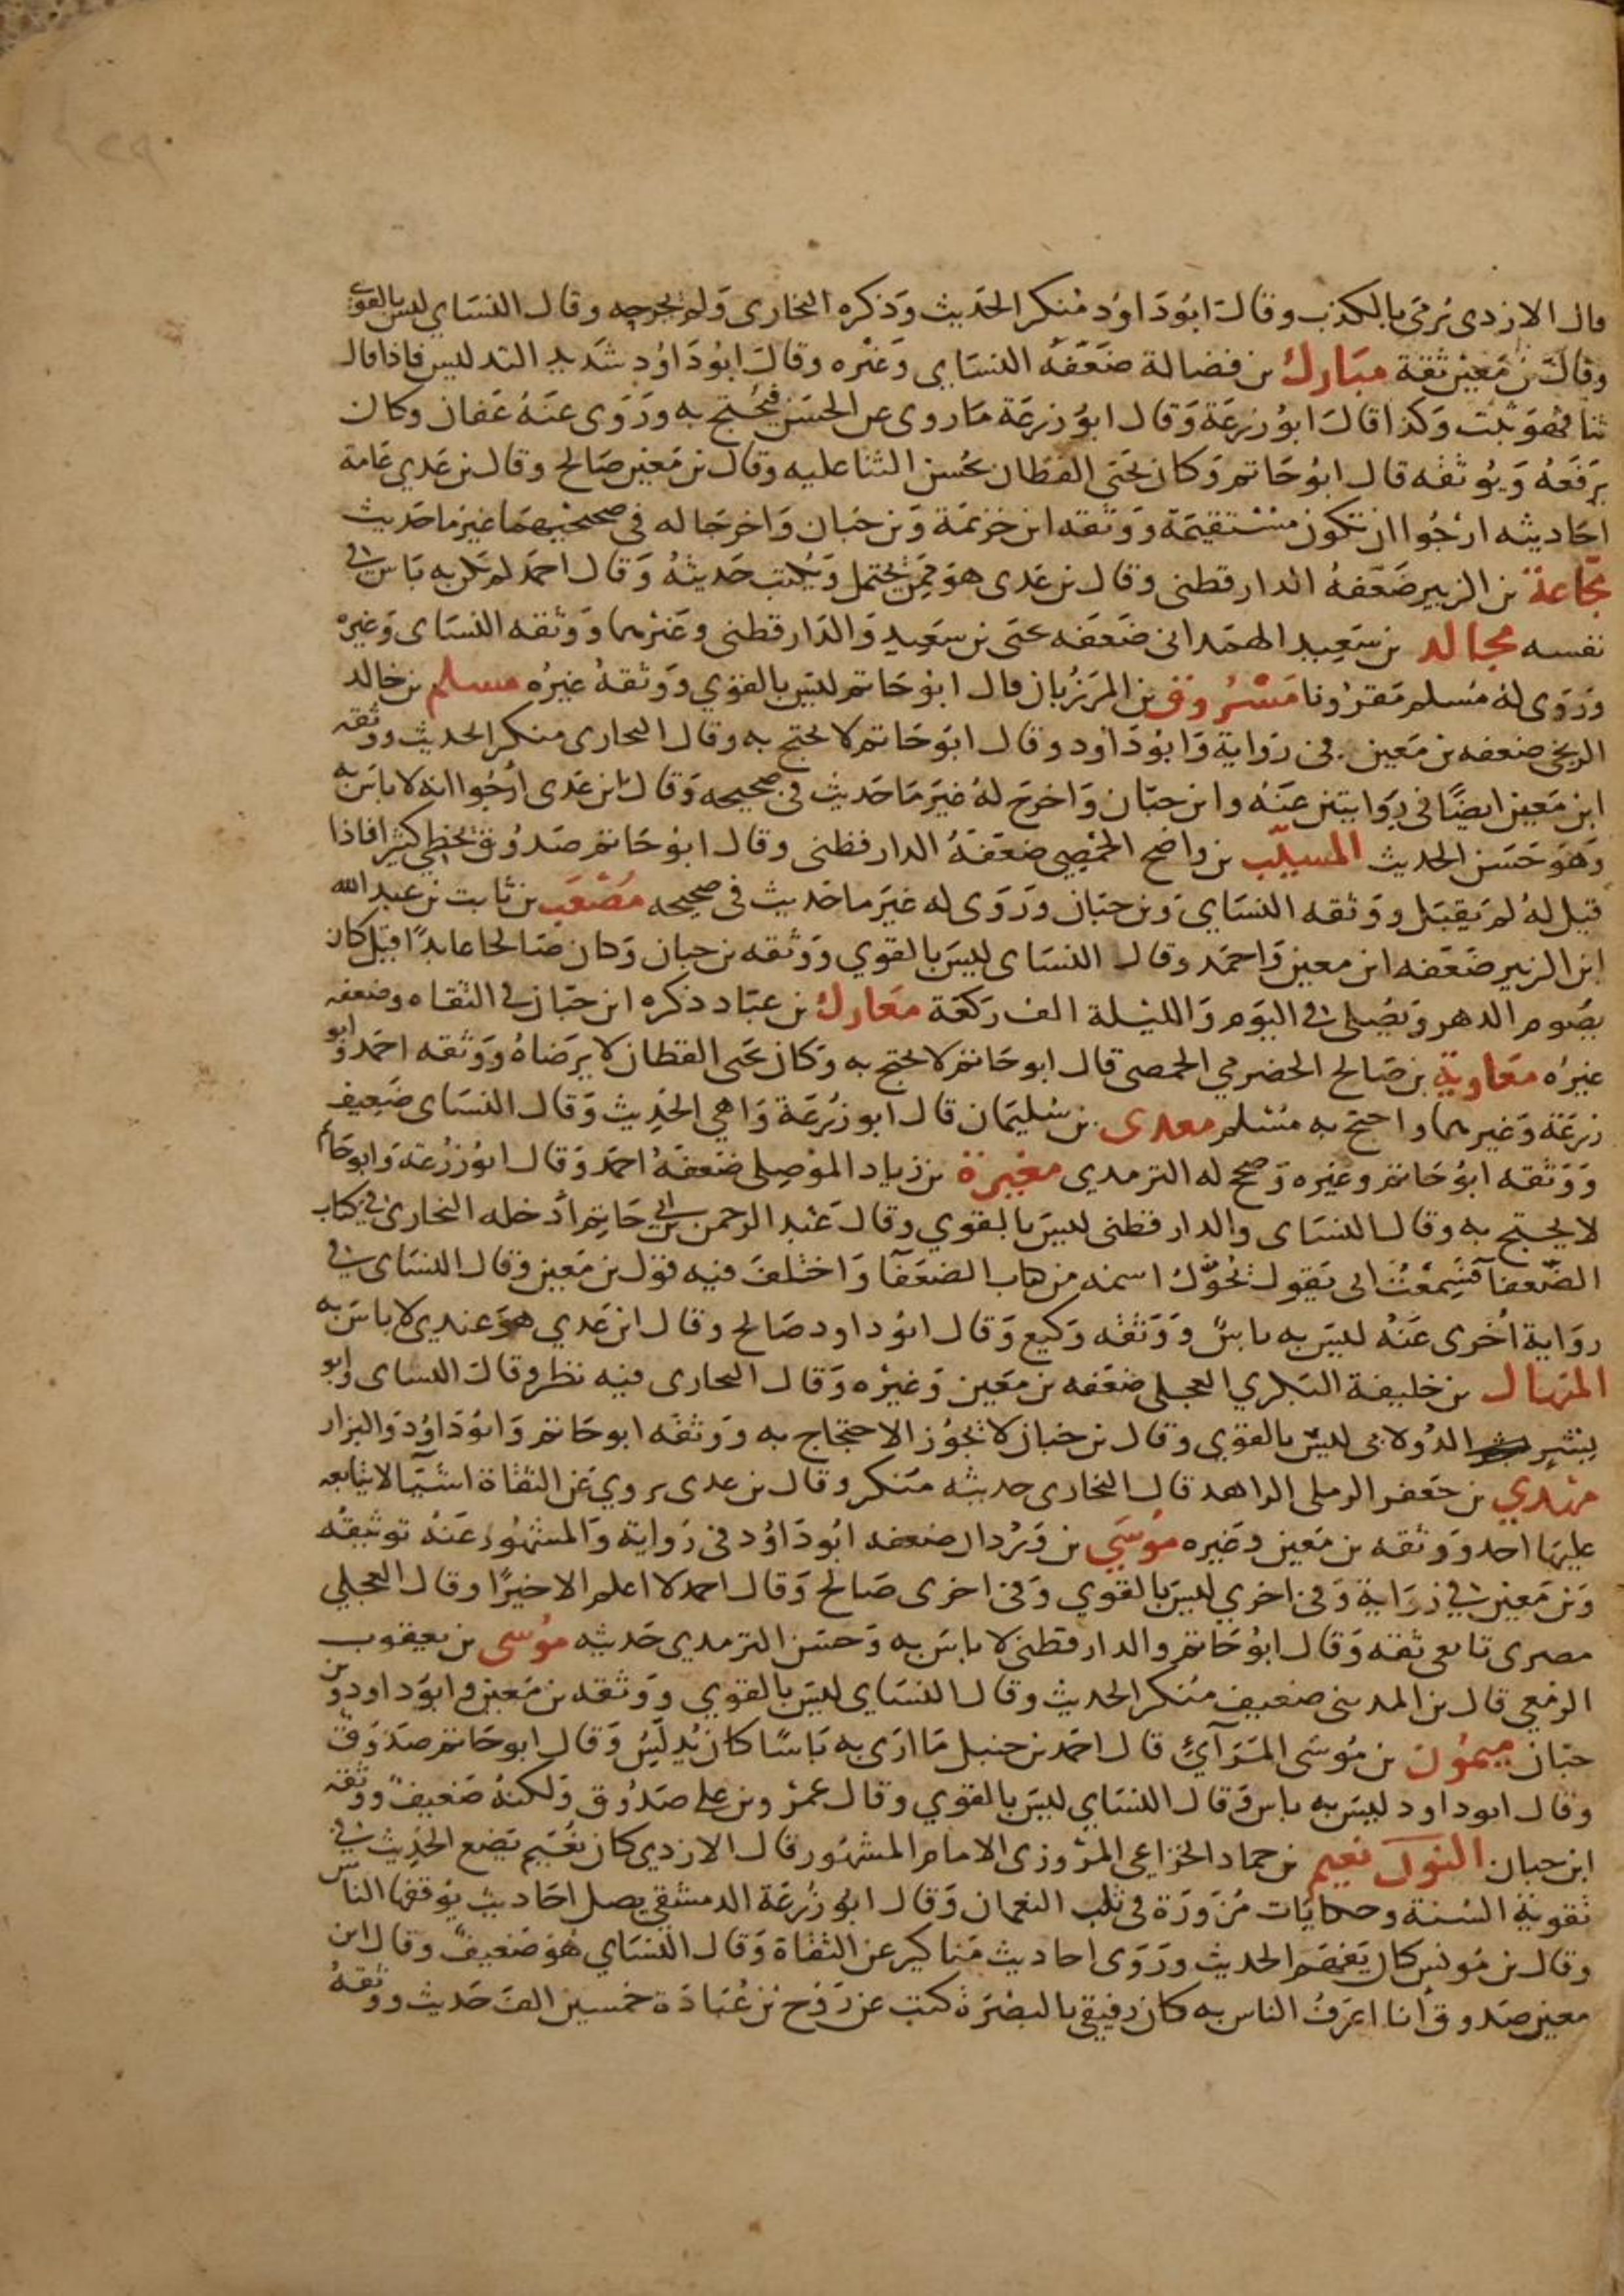 قال الازدي يُرمى بالكذب وقال ابُو دَاوُد مُنكر الحَديث وَذكره البخاري وَلم يجرحه وقال النسَاي ليس بالقوي
وقالَ بن مَعين ثقة مبَارك بن فضالة ضَعّفَه النسَاي وَغيْره وقال ابُو دَاوُد شَديد التدليس فاذا قال
ثنا فهوَ ثبْت وَكذا قالَ ابوُ زرعَة وَقال ابوُ زرعَة مَا روى عن الحسَن فيُحتج به ورَوَى عنَهُ عَفان وكان
يرَفَعهُ وَيُوثقه قال ابوُ حَاتم وَكان يحَيَى القطان يحُسن الثنا عليه وقال بن مَعين صَالح وقال بن عَدي عَامة
احَاديثه ارْجُوا ان تكون مسْتقيمَة وَوثقه ابن خزيمَة وَبن حبَان وَاخرجَا له في صحيحيهمَا غيرَ ما حَديث
مجّاعة بن الزبير ضَعّفهُ الدارقطني وقال بن عَدى هوَ ممِن يحُتمل وَيُكتب حَديثهُ وَقال احمَد لم يَكن به بَاس في
نفسه مجالد بن سَعِيد الهمَداني ضَعَفه يحيَى بن سَعيد وَالدَارقطني وغيَرْهما وَوثقه النسَاى وَغيرْه
وَرَوى لهُ مُسلم مَقرُونا مَسْرُوق بن المرَزُبان قال ابوُ حَاتم ليسَ بالقوَي وَوَثقهُ غيَرُه مسلم بن خالد
الزنجي ضعفه بن مَعين في رَواية وَابوُ دَاود وقال ابوُ حَاتم لا يحتج به وقال البخارى منكر الحديث ووثقه
ابن مَعين ايضًا في رِوَايتين عنَهُ وابن حبّان وَاخرجَ لهُ غيَر مَا حَديث في صحيحه وَقال بن عَدى أرْجُوا انه لا باسَ به
وَهوَ حَسَن الحديث المسيّب بن واضح الحمْصِي ضَعَفهُ الدارقطني وقال ابوُ حَاتم صَدُوق يخُطِي كثيرا فاذا
قيل لهُ لم يَقبَل ووَثقه النسَاي وَبن حبَان وَرَوَى له غيَر ما حَديث في صحيحه مُصْعَب بن ثابت بن عبد الله
ابن الزبير ضَعّفه ابن معين وَاحمَد وقال النسَاى ليسَ بالقوي وَوثقه بن حبان وَكان صَالحا عابدًا قيل كان
يصَوم الدهر وَيصُلى في اليوَم وَالليْلة الف رَكعَة معَارك بن عبَاد ذكره ابن حبّان في الثقاه وضعفه
غيرُه معَاوية بن صَالح الحضرمي الحمصى قال ابو حَاتم لا يحتج به وَكان يحيَى القطان لا يرَضاهُ وَوَثقه احمَد وَابو
زرعَة وَغيرهما واحتج به مُسْلم معدى بن سُليمَان قال ابو زُرعَة وَاهي الحَدِيث وَقال النسَاى ضَعِيف
وَوَثقه ابوُ حَاتم وغيَرْه وَصحح له الترمدي مغيرَة بن زياد الموْصِلى ضَعفهُ احمَد وَقال ابوُ زُرعَة وَابو حَاتم
لا يحتج به وقال النسَاى والدارقطني ليسَ بالقوي وقال عَبْد الرحمن بن ابي حَاتِم أدْخله البخارى في كتاب
الضّعفا فسَمعْتُ ابى يَقول يحُوّل اسمه من كتاب الضعَفآ وَاختْلفَ فيه قوْل بن مَعين وَقال النسَاى في
روَاية أخرى عَنهُ ليسَ به باسٌ وَوَثقه وَكيع وَقال ابوُ داود صَالح وقال ابن عَدي هوَ عندي لا باسَ به
المنهال بن خليفة البَكري العجلى ضعَفه بن مَعين وَغيْره وَقال البخارى فيه نظر وقال النساى وَابو
بِشْر الدُولابى ليسَ بالقوي وقال بن حبان لا يجُوُز الاحتجَاج به ووَثقَه ابو حَاتم وَابوُ دَاوُد وَالبزار
مهْدي بن جَعفر الرملى الزاهد قال البخارى حديثه منَكر وقال بن عدى يروي عَن الثقَاة اشَيَآ لا يتابعه
عليهَا احد وَوَثقه بن مَعين وغيره مُوسَي بن وَرْدان ضعفه ابُو دَاوُد في رَواية وَالمشهُور عَنهُ توثيقُه
وَبن مَعين في رِوَاية وَفي اخري ليسَ بالقوي وَفي اخرى صَالح وَقال احمد لا اعلم الا خيرًا وقال العجلي
مصرى تابعى ثقه وَقال ابوُ حَاتم والدارقطني لا باسَ به وَحسَن الترمدي حَديثه مُوسى بن يعقوب
الزمَعي قال بن المديني ضعيف مُنكر الحَديث وقال النسَاي ليسَ بالقوي ووَثقه بن مَعين وابوَ داود وَبن
حبَان ميمُون بن مُوسَى المَرَآئي قال احمَد بن حنبل مَا ارَى به بَاسًا كان يُدلِسُ وَقال ابو حَاتم صَدَوق
وقال ابو داود ليسَ به باس وَقال النسَاي ليسَ بالقوي وقال عمْرو بن على صَدُوق وَلكنهُ ضَعيفٌ ووثقه
ابن حبان النون نعيم بن حماد الخزاعي المرْوَزى الامام المشهُور قال الازدي كان نُعَيم يَضع الحَدِيث في
تقوية السُنة وحكايَات مُزَورَة في ثلب النعمان وَقال ابوُ زُرعَة الدمشقي يصل احَاديث يوُقفها الناس
وقال بن يوُنس كان يَفهَم الحديث ورَوَى احاديث مَناكير عن الثقاة وَقال النسَاي هُوَ ضَعيفٌ وقال ابن
معين صَدوق انا اعرَفُ الناس به كان رفيقي بالبصَرَة كتب عن رَوْح بن عُبَادَة خمسين الفَ حَديث ووثقهُ